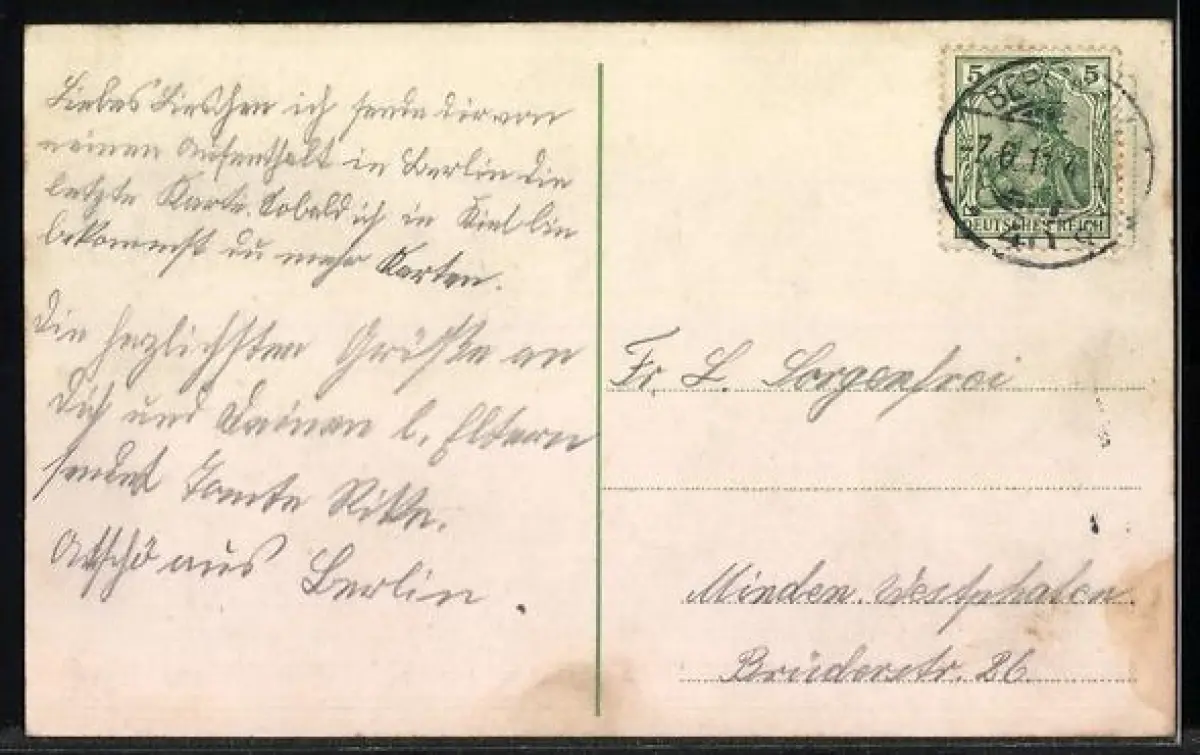 Liebes Lieschen ich sende dir von
meinen Aufenthalt in Berlin die
letzte Karte. Sobald ich in Kiel bin
bekommst du mehr Karten.
Die herzlichsten Grüße an
dich und deinen l. Eltern
sendet Tante
aus Berlin.
5 5
DEUTSCHES REICH
Fr. L. Sorgenfrei
Minden. Westphalen.
Brüderstr. 26.